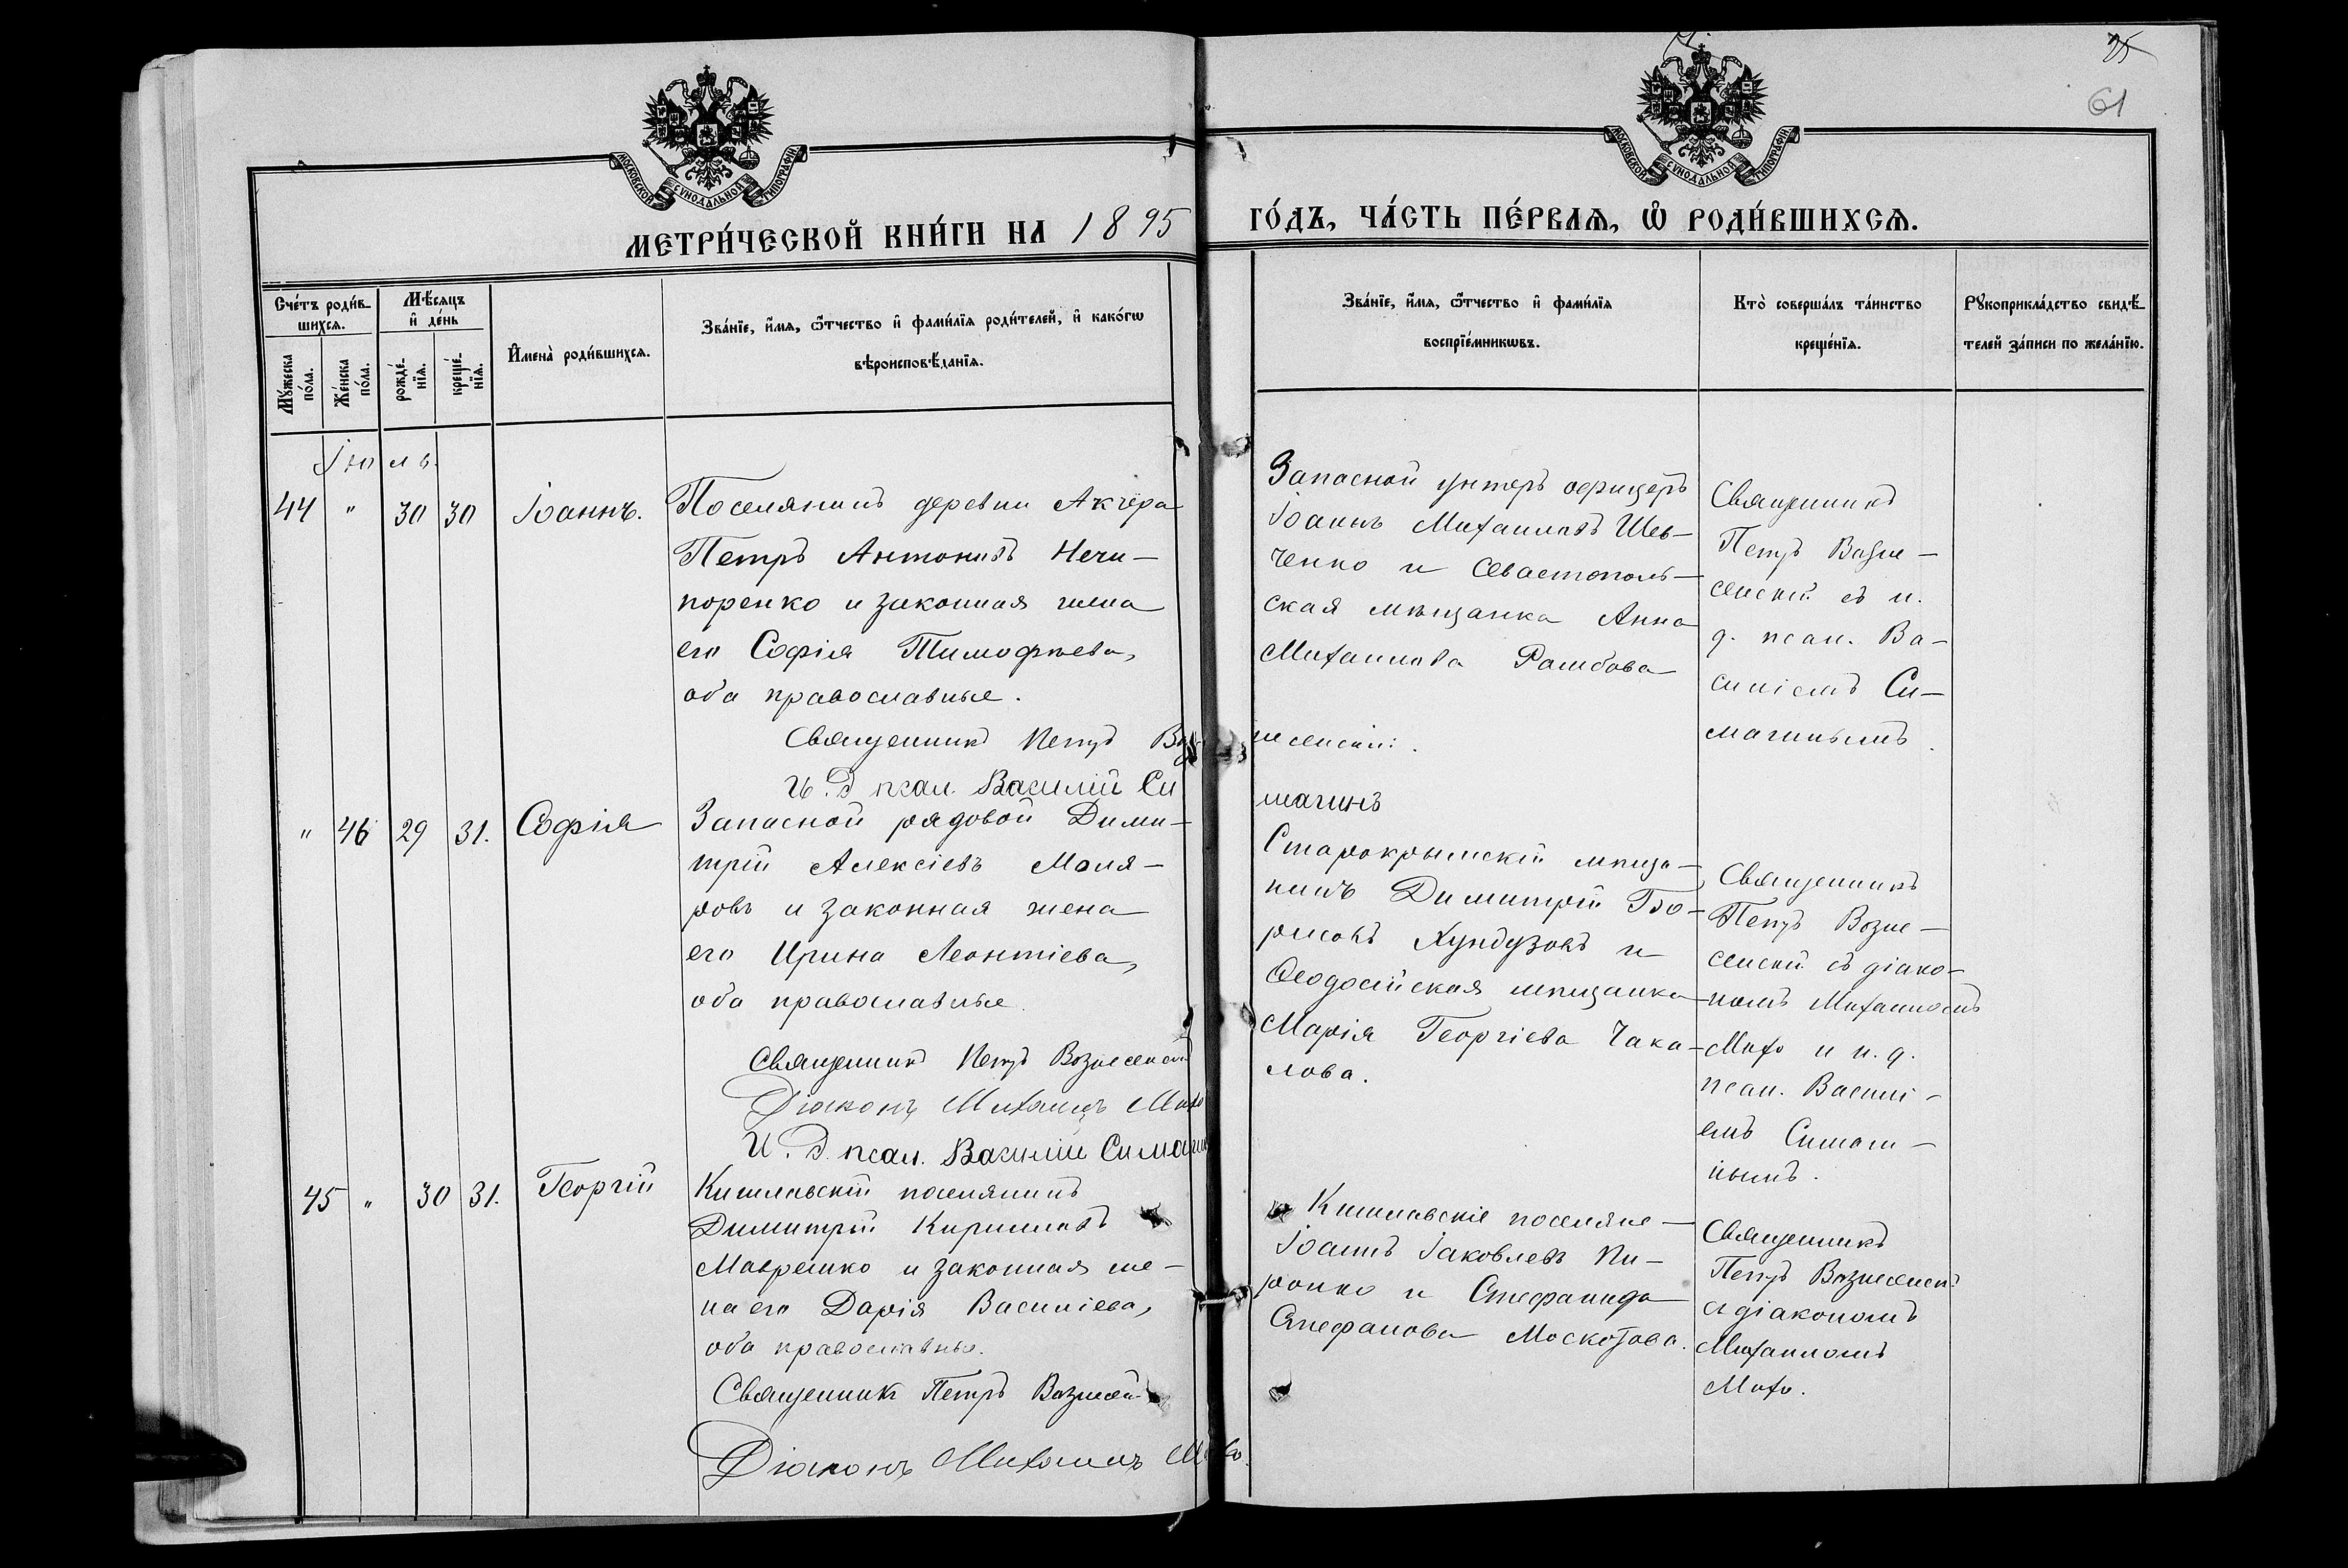 25
61
МОСКОВСКОЙ СѴНОДАЛЬНОЙ ТИПОГРАФІИ
МОСКОВСКОЙ СѴНОДАЛЬНОЙ ТИПОГРАФІИ
МЕТРИ́ЧЕСКОЙ КНИ́ГИ НА 1895
ГО́ДЪ, ЧА́СТЬ ПЕ́РВАѦ, Ѽ РОДИ́ВШИХСѦ.
Сче́тъ роди́в-
шихсѧ.
Мѣ́сѧцъ
и҆ де́нь
Мꙋ́жеска
по́ла.
Же́нска
по́ла.
рожде́-
нїѧ.
креще́-
нїѧ.
И҆мена̀ роди́вшихсѧ.
Зва́нїе, и҆́мѧ, ѻ҆́тчество и҆ фами́лїѧ роди́телей, и҆ како́гѡ
вѣроисповѣ́данїѧ.
Зва́нїе, и҆́мѧ, ѻ҆́тчество и҆ фами́лїѧ
воспрїе́мникѡвъ.
Кто̀ соверша́лъ та́инство
креще́нїѧ.
Рꙋкоприкла́дство свидѣ́-
телей за́писи по жела́нїю.
Іюль.
44 " 30 30 Іоаннъ.
Поселянинъ деревни Акчора
Петръ Антоновъ Нечи-
поренко и законная жена
его Софія Тимофѣева,
оба православные.
Священникъ Петръ Воз-
несенскій.
И. д. псал. Василій Си
магинъ
Запасной унтеръ офицеръ
Іоаннъ Михаиловъ Шев-
ченко и Севастополь-
ская мѣщанка Анна
Михаилова
Священникъ
Петръ Возне-
сенскій съ и.
д. псал. Ва-
силіемъ Си-
магинымъ.
" 46 29 31. Софія
Запасной рядовой Дими-
трій Алексіевъ Моля-
ровъ и законная жена
его Ирина Леонтіева,
оба православные.
Священникъ Петръ Вознесенскій
Діаконъ Михаилъ Михо
И. д. псал. Василій Симагин
Старокрымскій мѣща-
нинъ Димитрій Бо-
рисовъ Хундузовъ и
Ѳеодосійская мѣщанка
Марія Георгіева Чака-
лова.
Священникъ
Петръ Возне-
сенскій съ діако-
номъ Михаиломъ
Михо и и. д.
псал. Василі-
емъ Симаги-
нымъ.
45 " 30 31. Георгій
Кишлавскій поселянинъ
Димитрій Кирилловъ
Мавренко и законная же-
на его Дарія Василіева,
оба православные.
Священникъ Петръ Вознесен
Діаконъ Михаилъ Михо.
Кишлавскіе поселяне
Іоаннъ Іаковлевъ Пи-
ронко и Стефанида
Стефанова Москотова.
Священникъ
Петръ Вознесенскій
съ діакономъ
Михаиломъ
Михо.